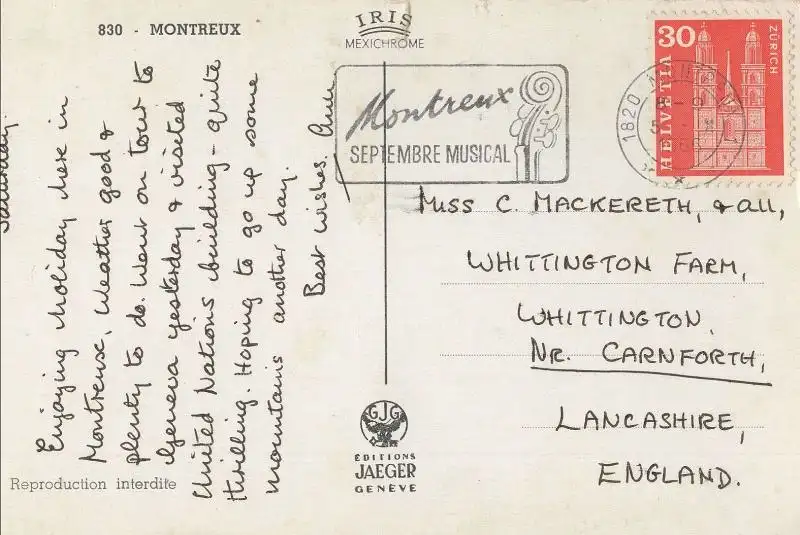 830 - MONTREUX
IRIS
MEXICHROME
Saturday.
Enjoying holiday here in
Montreux. Weather good &
plenty to do. Went on tour to
Geneva yesterday & visited
United Nations building - quite
thrilling. Hoping to go up some
mountains another day.
Best wishes.
Reproduction interdite
GJG
EDITIONS
JAEGER
GENÈVE
Montreux
SEPTEMBRE MUSICAL
1820
30
HELVETIA
ZÜRICH
MISS C. MACKERETH, & ALL,
WHITTINGTON FARM,
WHITTINGTON.
NR. CARNFORTH,
LANCASHIRE,
ENGLAND.